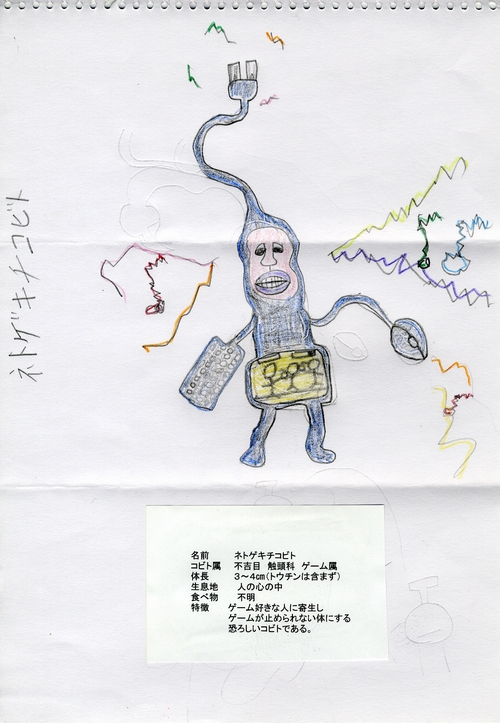 ネトゲキチコビト
名前 ネトゲキチコビト
コビト属 不吉目 触頭科 ゲーム属
体長 3~4㎝(トウチンは含まず)
生息地 人の心の中
食べ物 不明
特徴 ゲーム好きな人に寄生し
ゲームが止められない体にする
恐ろしいコビトである。